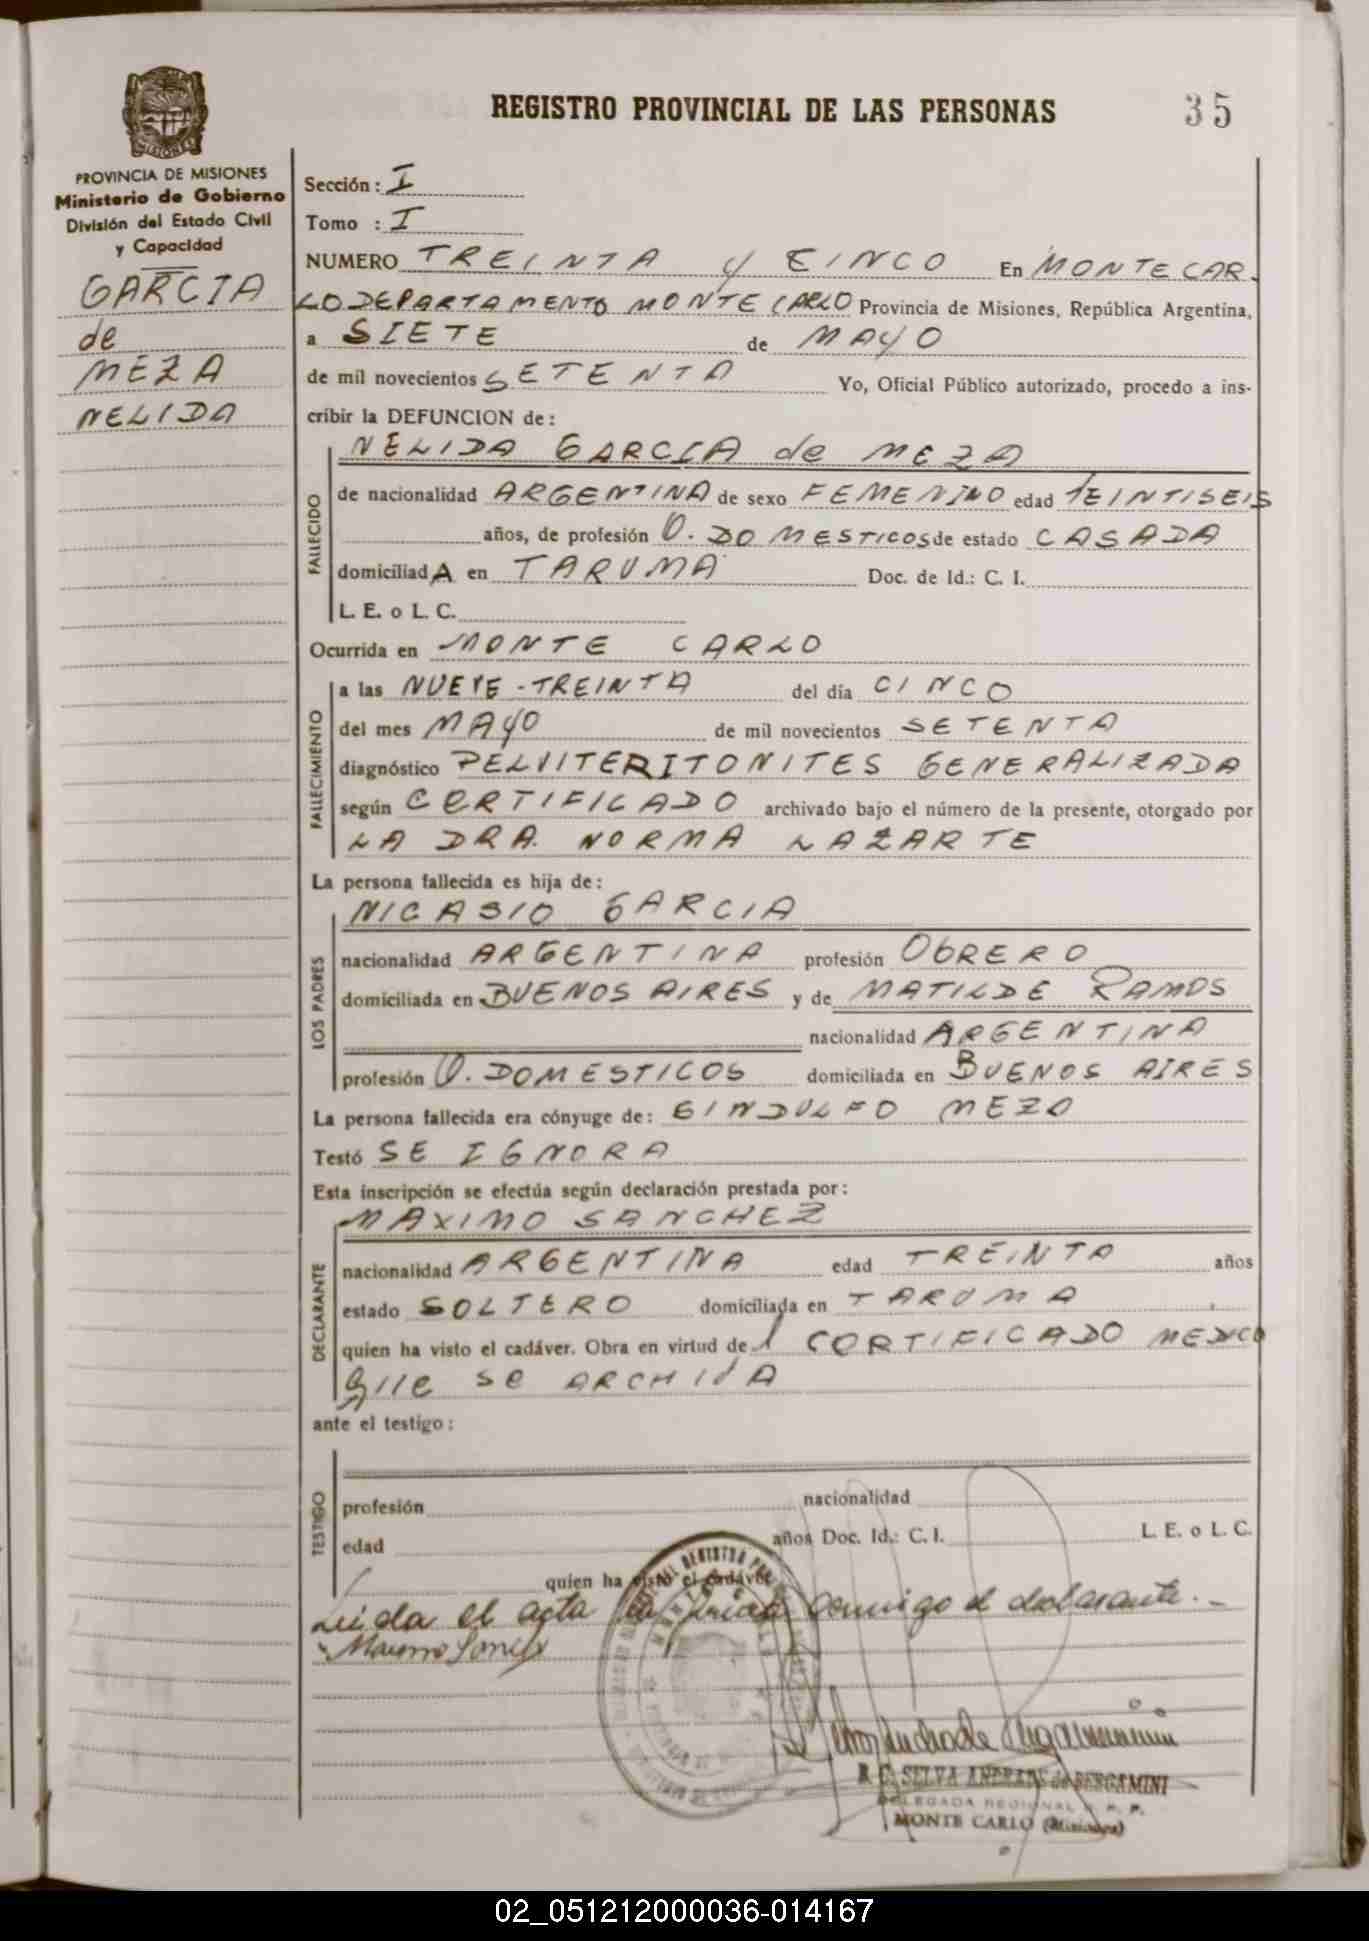 REGISTRO PROVINCIAL DE LAS PERSONAS
35
PROVINCIA DE MISIONES
Ministerio de Gobierno
División del Estado Civil
y Capacidad
GARCIA
de
MEZA
NELIDA
Sección: I
Tomo : I
NUMERO TREINTA y CINCO En MONTECAR
LO DEPARTAMENTO MONTE CARLO Provincia de Misiones, República Argentina,
a SIETE de MAYO
de mil novecientos SETENTA Yo, Oficial Público autorizado, procedo a ins-
cribir la DEFUNCION de:
NELIDA GARCIA de MEZA
FALLECIDO
de nacionalidad ARGENTINA de sexo FEMENINO edad TEINTISEIS
años, de profesión Q. DOMESTICOS de estado CASADA
domiciliadA en TARUMA Doc. de Id.: C. I.
L. E. o L. C.
Ocurrida en MONTE CARLO
FALLECIMIENTO
a las NUEVE-TREINTA del día CINCO
del mes MAYO de mil novecientos SETENTA
diagnóstico PELVITERITONITES GENERALIZADA
según CERTIFICADO archivado bajo el número de la presente, otorgado por
LA DRA. NORMA LAZARTE
La persona fallecida es hija de:
NICASIO GARCIA
LOS PADRES
nacionalidad ARGENTINA profesión ObRERO
domiciliada en BUENOS AIRES y de MATILDE RAMOS
nacionalidad ARGENTINA
profesión Q. DOMESTICOS domiciliada en BUENOS AIRES
La persona fallecida era cónyuge de: GINDULFO MEZA
Testó SE IGNORA
Esta inscripción se efectúa según declaración prestada por:
MAXIMO SANCHEZ
DECLARANTE
nacionalidad ARGENTINA edad TREINTA años
estado SOLTERO domiciliada en TARUMA
quien ha visto el cadáver. Obra en virtud del CORTIFICADO MEDICO
que se ARCHIVA
ante el testigo:
TESTIGO
profesión nacionalidad
edad años Doc. Id.: C. I. L. E. o L. C.
quien ha visto el cadáver
Leida el acta la firma conmigo el declarante.-
R. E. SELVA ANDRADE de BERGAMINI
DELEGADA REGIONAL R. P. P.
MONTE CARLO (Misiones)
02_051212000036-014167